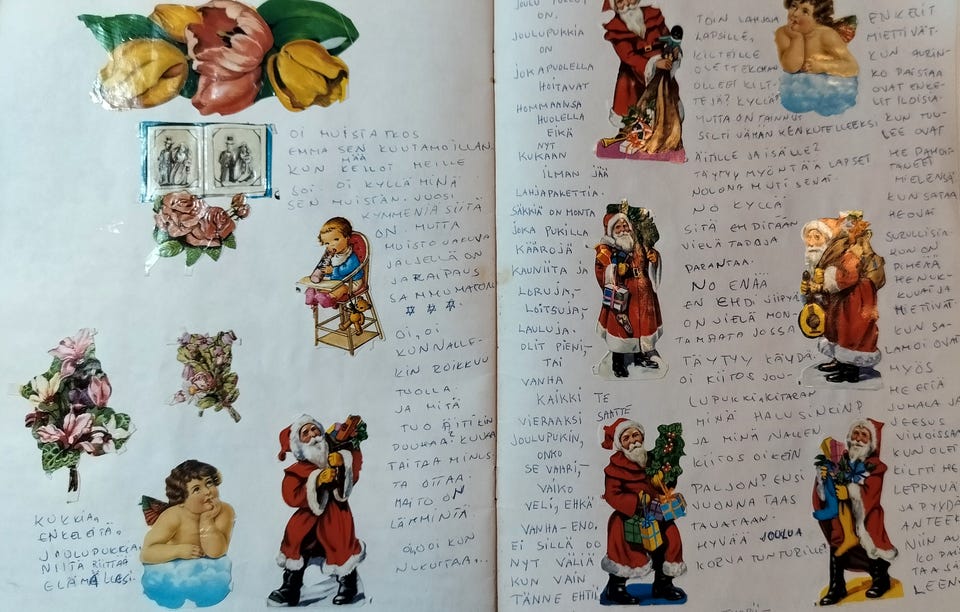 OI MUISTATKOS
EMMA SEN KUUTAMOILLAN,
KUN KELLOT MEILLE
SOI. OI KYLLÄ MINÄ
SEN MUISTAN. VUOSI-
KYMMENIÄ SIITÄ
ON. MUTTA
MUISTO VAKUVA
JÄLJELLÄ ON
JA RAIPAUS
SAMMUMATON.
OI, OI
KUN NALLE-
KIN ROIKKUU
TUOLLA.
JA MITÄ
TUO ÄITIKIN
PUUHAA? KUVAA
TAITAA MINUS-
TA OTTAA.
MAITO ON
LÄMMINTÄ.
OI KUN
NUKUTTAA...
KUKKIA,
ENKELEITÄ,
JOULUPUKKIA
NIITÄ RIITTÄÄ
ELÄMÄLLESI.
ON.
JOULUPUKKIA
ON
JOKAPUOLELLA
HOITAVAT
HOMMAANSA
HUOLELLA
EIKÄ
NYT
KUKAAN
ILMAN JÄÄ
LAHJAPAKETTIA.
SÄKKIÄ ON MONTA
JOKA PUKILLA
KÄÄRÖJÄ
KAUNIITA JA
LORUJA,-
LOITSUJA,-
LAULUJA.
OLIT PIENI,-
TAI
VANHA
KAIKKI TE
SAATTE
VIERAAKSI
JOULUPUKIN,
ONKO
SE VAARI,-
VAIKO
VELI, EHKÄ
VANHA-ENO.
EI SILLÄ OO
NYT VÄLIÄ
KUN VAIN
TÄNNE EHTII
TOIN LAHJOJA
LAPSILLE,
KILTEILLE
OLETTEKOHAN
OLLEET KILT-
TEJÄ? KYLLÄ
MUTTA ON TAINNUT
SILTI VÄHÄN KENKUTELLEEKSI
ÄITILLE JA ISÄLLE?
TÄYTYY MYÖNTÄÄ LAPSET
NOLONA MUTISEVAT.
NO KYLLÄ.
SITÄ EHDITÄÄN
VIELÄ TAPOJA
PARANTAA.
NO ENÄÄ
EN EHDI JIIPYÄ
ON VIELÄ MON-
TA MAATA JOSSA
TÄYTYY KÄYDÄ.
OI KIITOS JOU-
LUPUKKI KITARAN
MINÄ HALUSINKIN?
JA MINÄ NALLEN
KIITOS OIKEIN
PALJON? ENSI
VUONNA TAAS
TAVATAAN.
HYVÄÄ JOULUA
KORVATUNTURILLE
ENKELIT
MIETTIVÄT.
KUN AURIN-
KO PAISTAA
OVAT ENKE-
LIT ILOISIA.
KUN TUU-
LEE OVAT
HE PAHOIT-
TANEET
MIELENSÄ
KUN SATAA
HE OVAT
SURULLISIA.
KUN ON
PIMEÄÄ
HE NUK-
KUVAT JA
MIETTIVÄT.
KUN SA-
LAMOI OVAT
MYÖS
HE EIIÄ
JUMALA JA
JEESUS
VIHOISSAAN
KUN OLET
KILTTI HE
LEPPYVÄT
JA PYYDÄ
ANTEEKSI
NIIN AU-